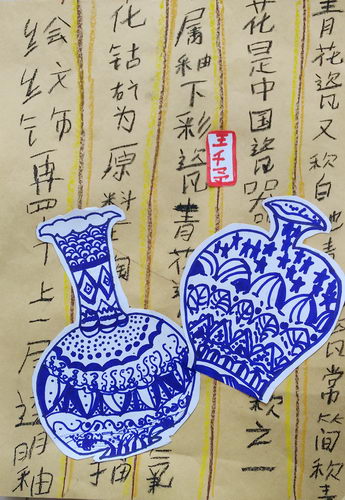 青花瓷又称白地青瓷常简称青
花是中国瓷器之一
属釉下彩瓷青花瓷氧
化钴矿为原料陶
绘纹饰再上一层明釉